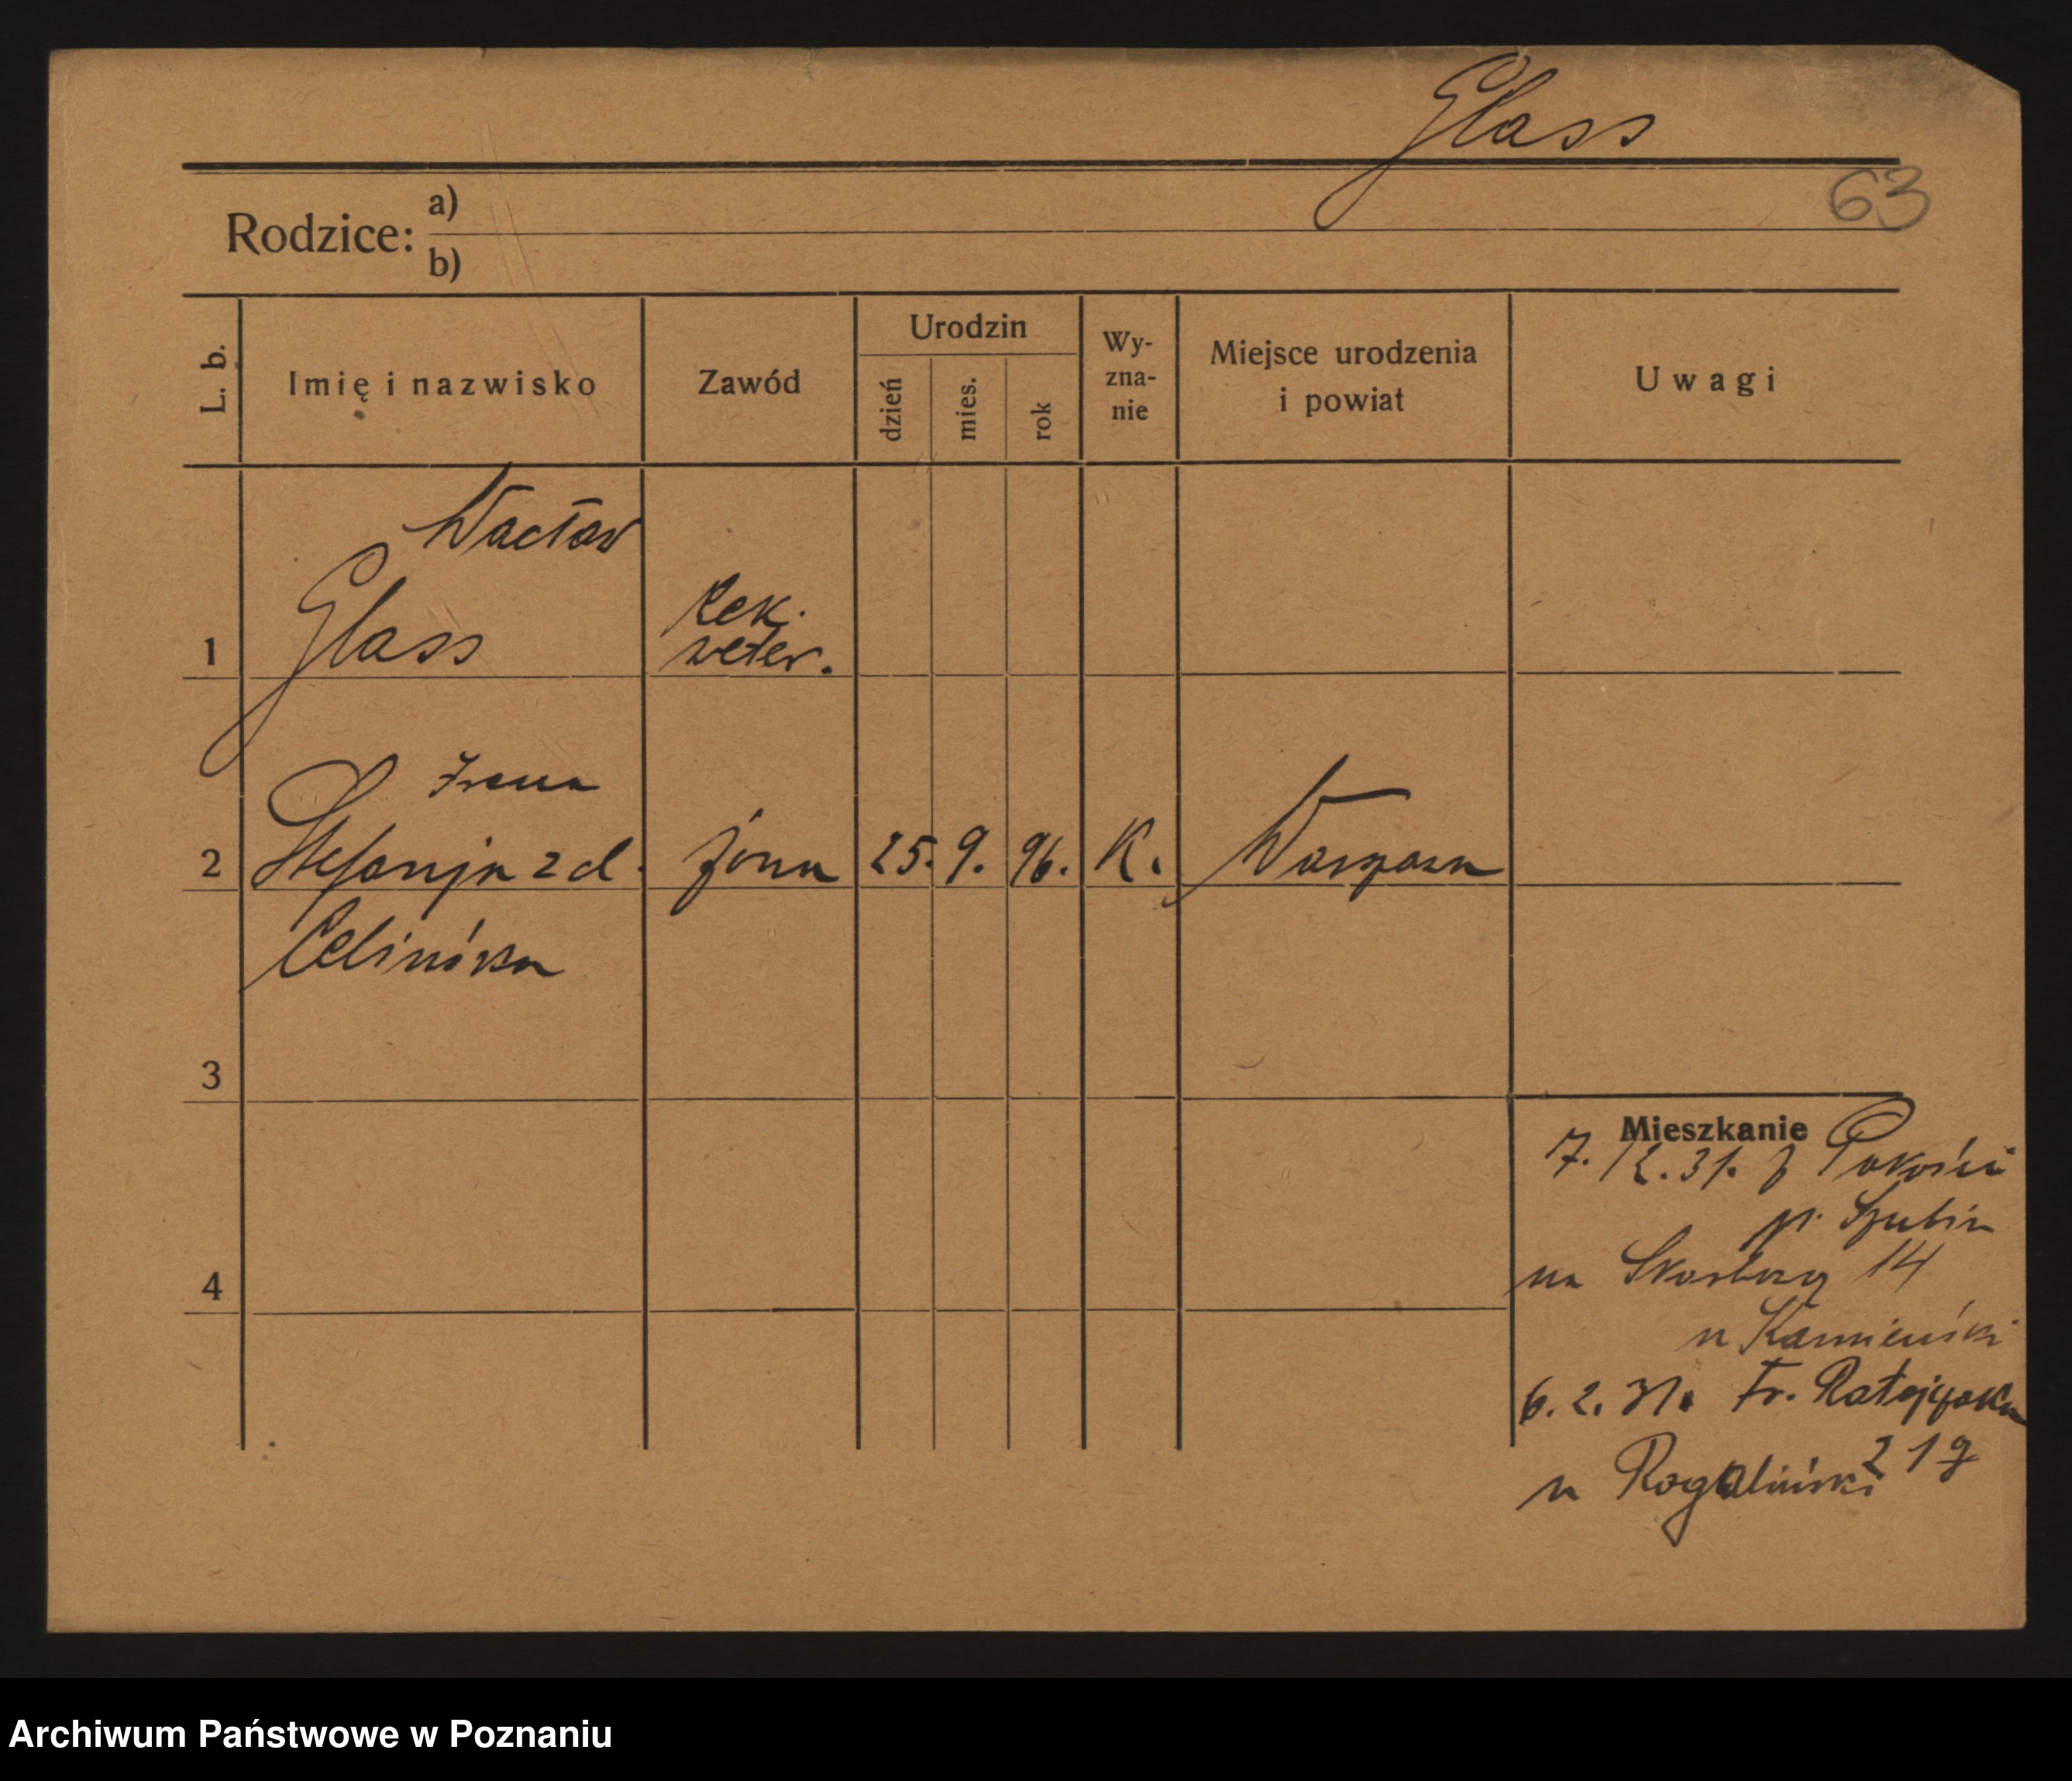 Glass
63
Rodzice: a)
b)
L. b.
Imię i nazwisko
Zawód
Urodzin
dzień
mies.
rok
Wy-
zna-
nie
Miejsce urodzenia
i powiat
Uwagi
Wacław
Glass
lek.
weter.
1
Irena
2 Stefanja z d. żona 25. 9. 96. K. Warszawa
3
4
Mieszkanie
17. 12. 31. z Pakości
p. Szubin
na Skarbową 14
u Kamieński
6. 2. 31. Fr. Ratajczaka
21
u Rogaliński
Archiwum Państwowe w Poznaniu